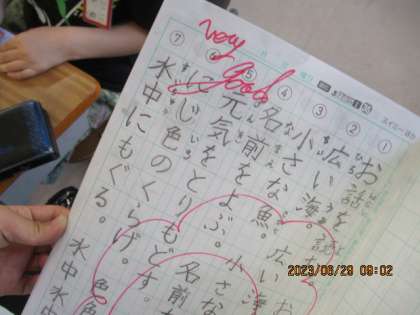 very good
① ② ③ ④ ⑤ ⑥ ⑦
お話を
広い海。 広い
小さな魚。 小さな
名前をよぶ。 名前
元気をとりもどす。
にじ色のくらげ。 色 色
水中にもぐる。 水中 水中
2023/06/29 09:02